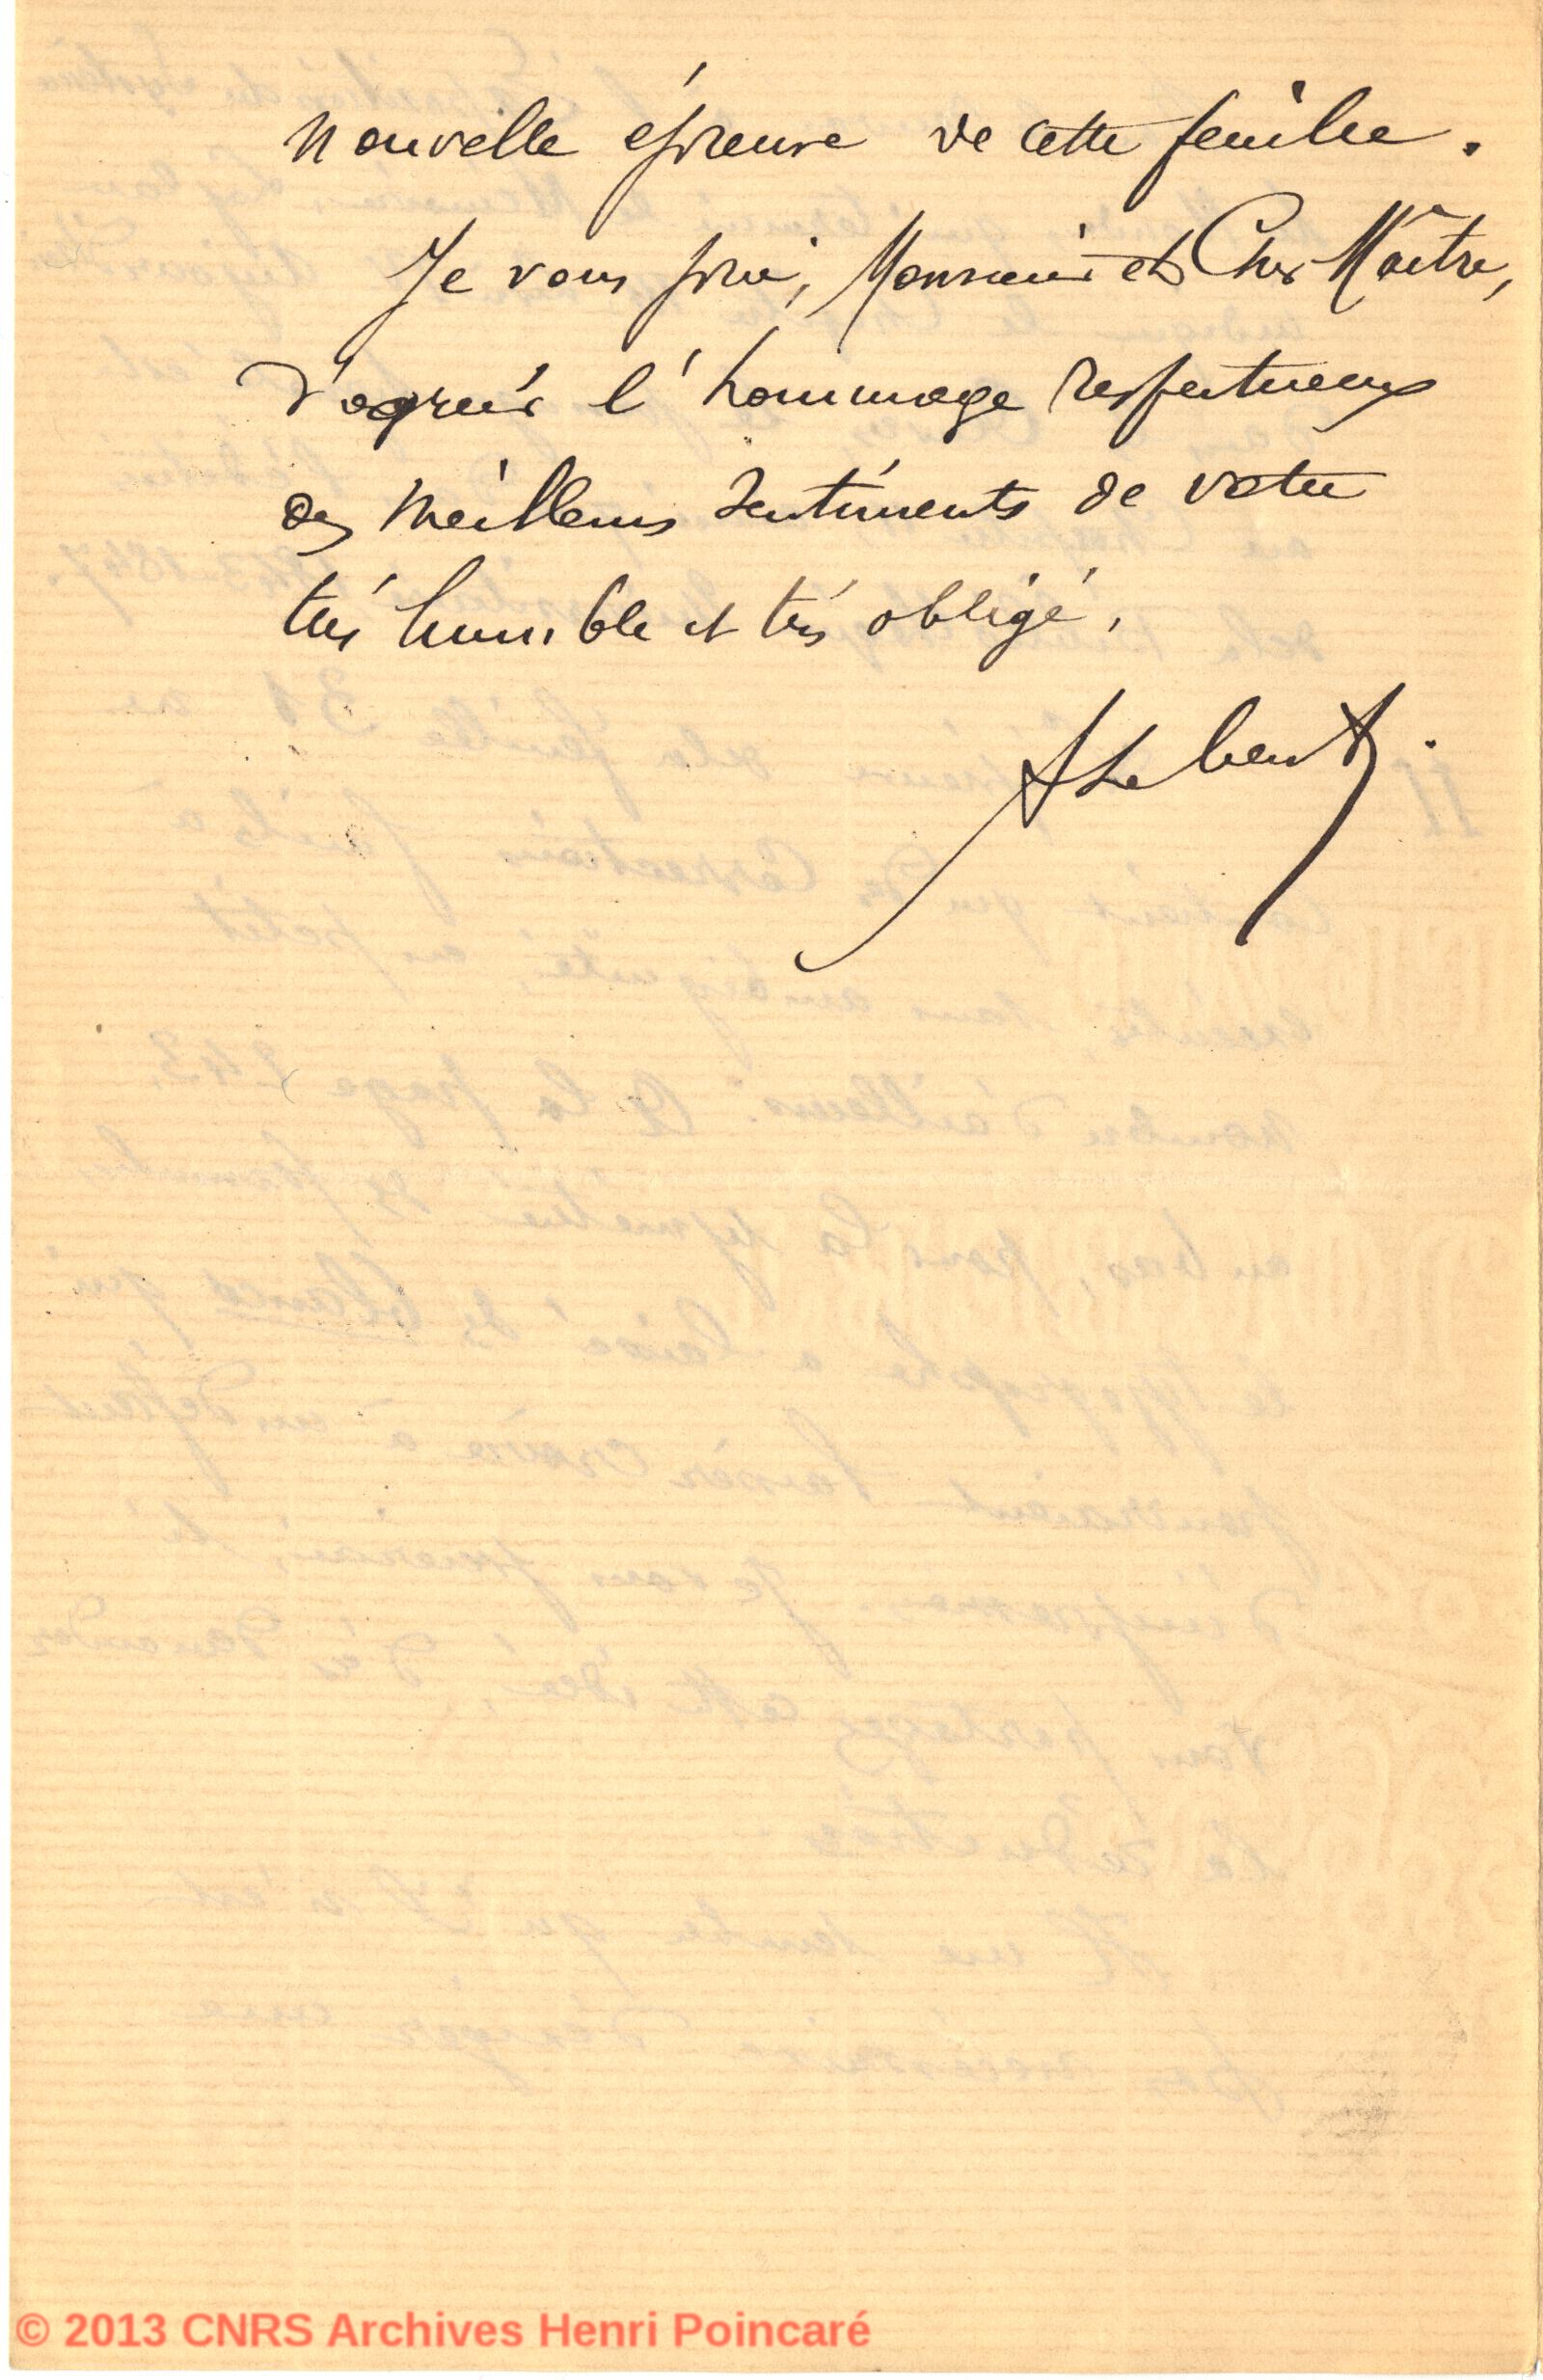 nouvelle épreuve de cette feuille.
Je vous prie, Monsieur et Cher Maître,
d'agréer l'hommage respectueux
des meilleurs sentiments de votre
très humble et très obligé,
A Lebeuf.
© 2013 CNRS Archives Henri Poincaré